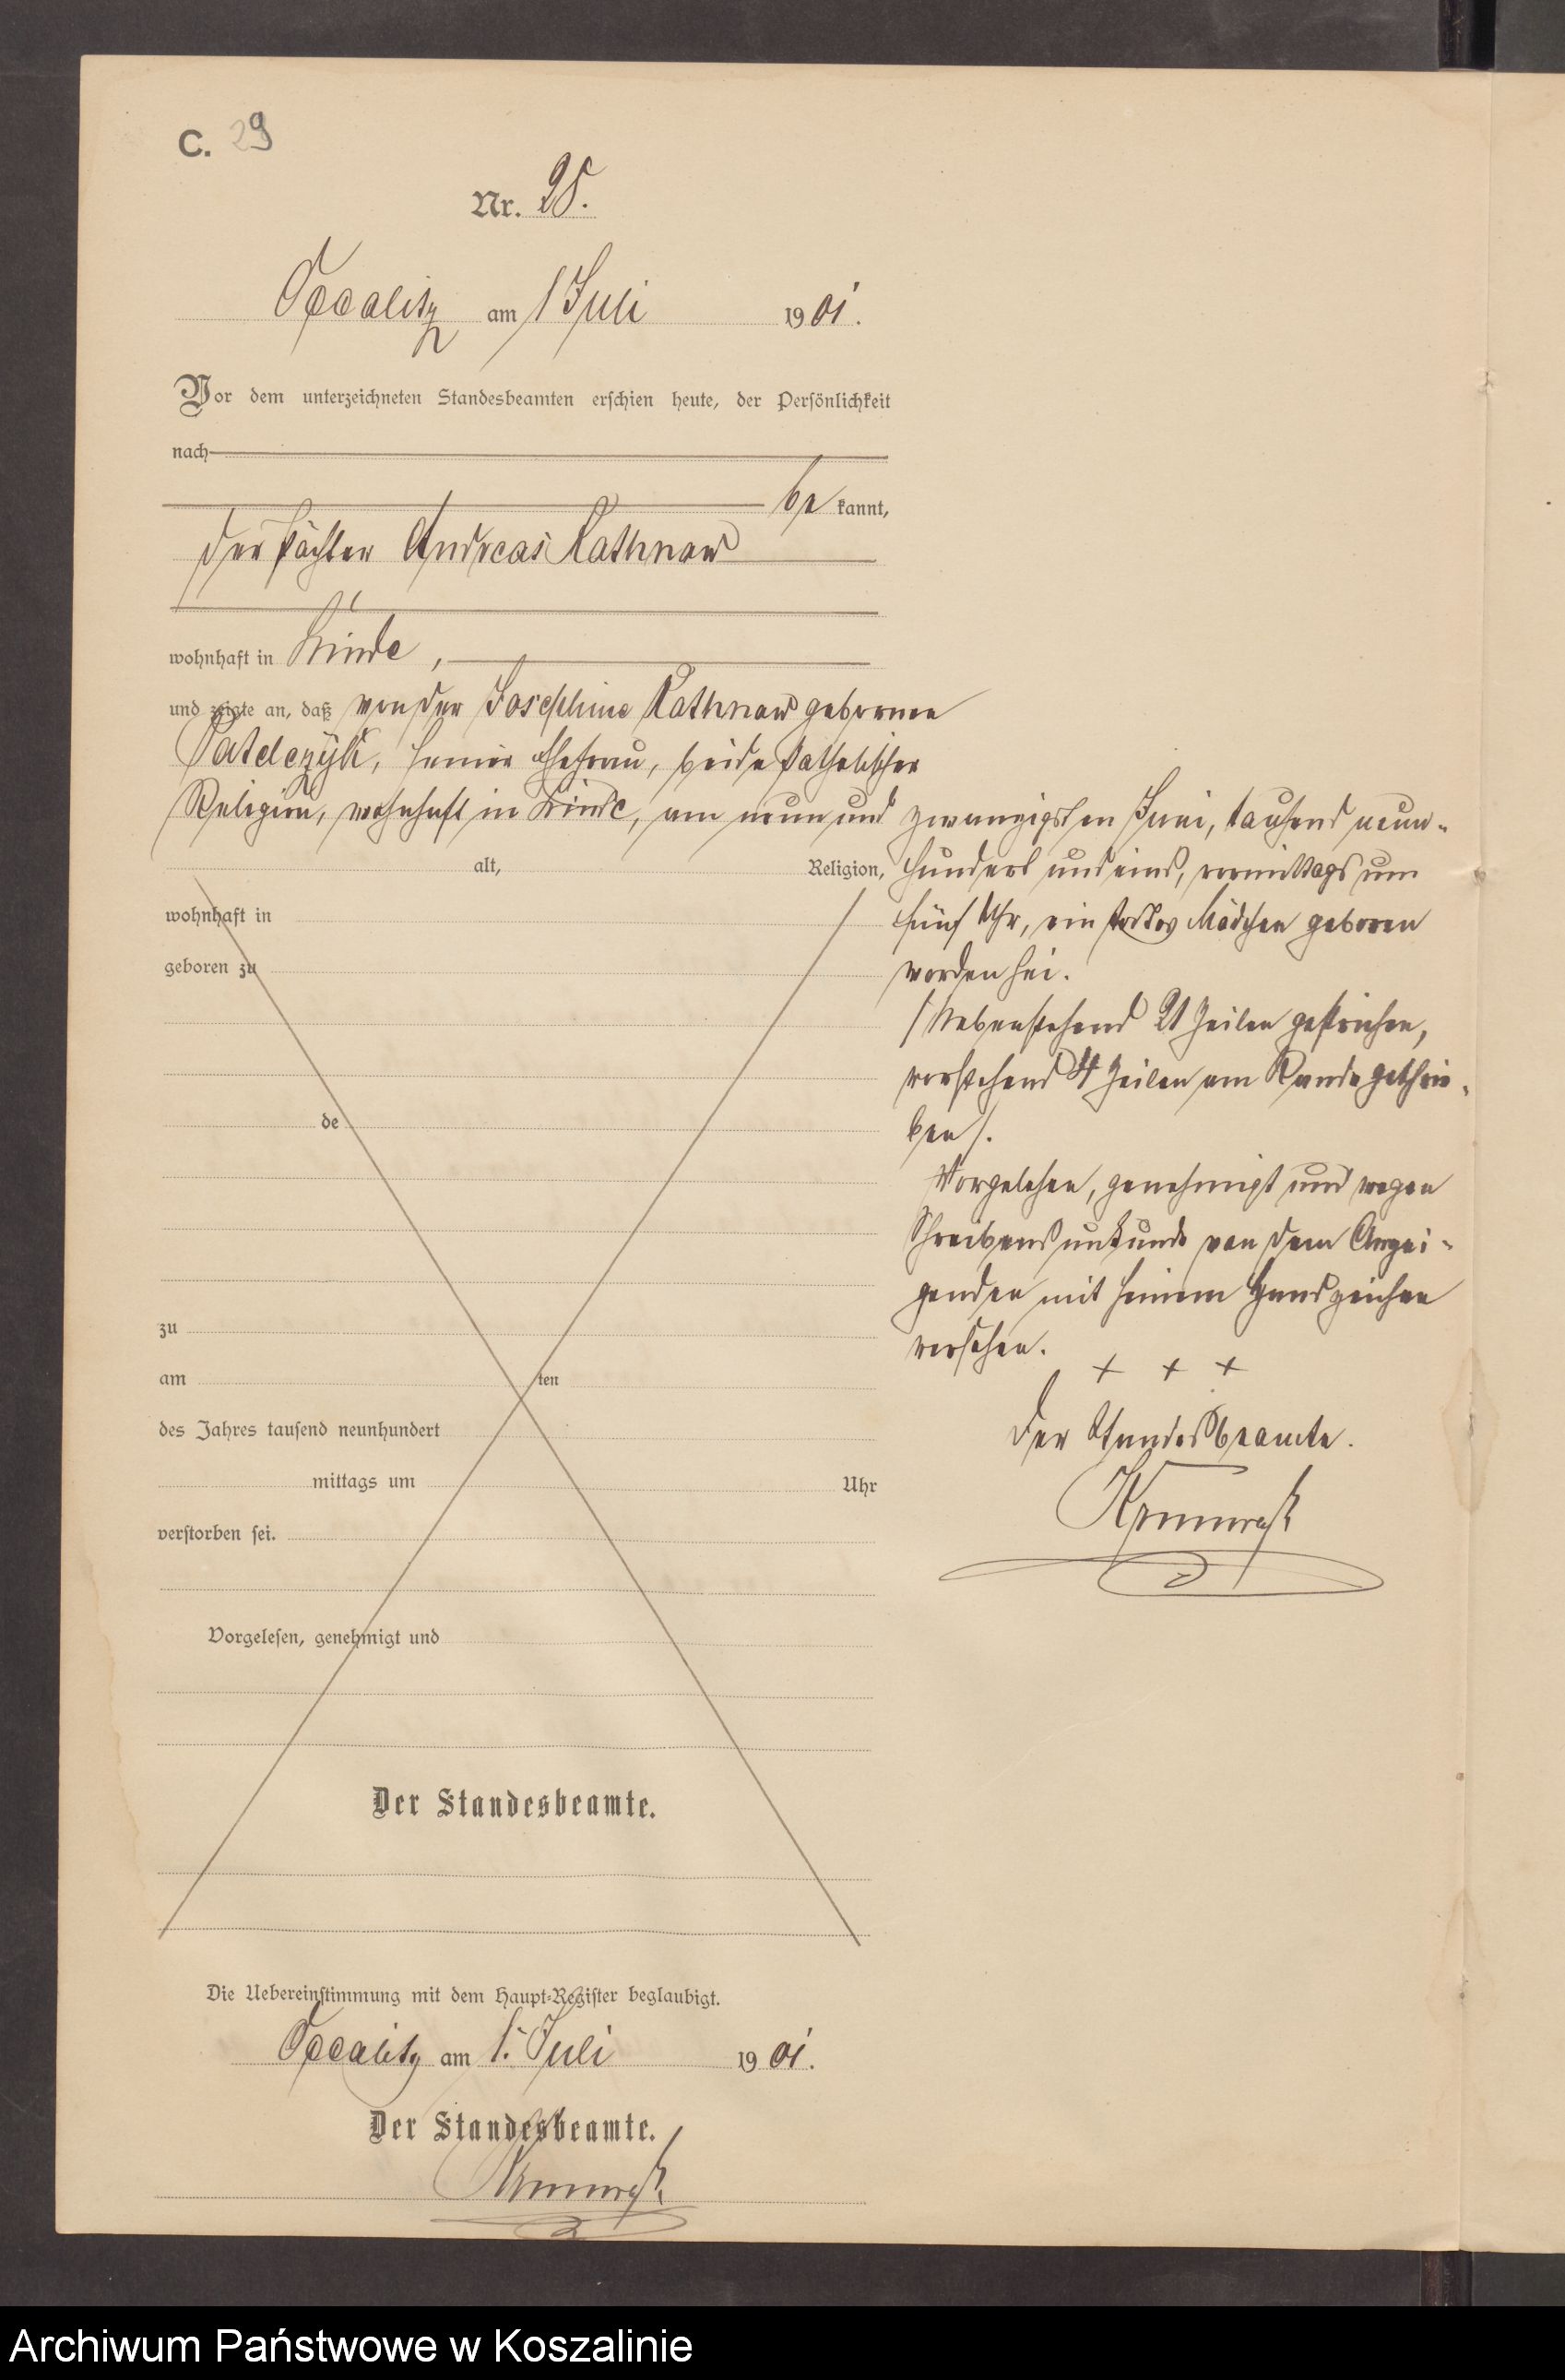 C. 29
Nr. 25.
Occalitz am 1 Juli 1901.
Vor dem unterzeichneten Standesbeamten erschien heute, der Persönlichkeit
nach
be kannt,
der Pächter Andreas Kathnow
wohnhaft in Linde,
und zeigte an, daß von der Josephine Kathnow geborene
Patelczyk, seiner Ehefrau, beide katholischer
Religion, wohnhaft in Linde, am neun und zwanzigsten Juni, tausend neun-
alt, Religion, hundert und eins, vormittags um
wohnhaft in fünf Uhr, ein totes Mädchen geboren
geboren zu worden sei.
/ Nebenstehend 21 Zeilen gestrichen,
vorstehend 4 Zeilen am Rande geschrie-
de ben /.
Vorgelesen, genehmigt und wegen
Schreibensunkunde von dem Anzei-
genden mit seinem Handzeichen
zu versehen.
+ + +
am ten
des Jahres tausend neunhundert Der Standesbeamte.
mittags um Uhr
verstorben sei.
Vorgelesen, genehmigt und
Der Standesbeamte.
Die Uebereinstimmung mit dem Haupt-Register beglaubigt.
Occalitz am 1. Juli 1901.
Der Standesbeamte.
Archiwum Państwowe w Koszalinie